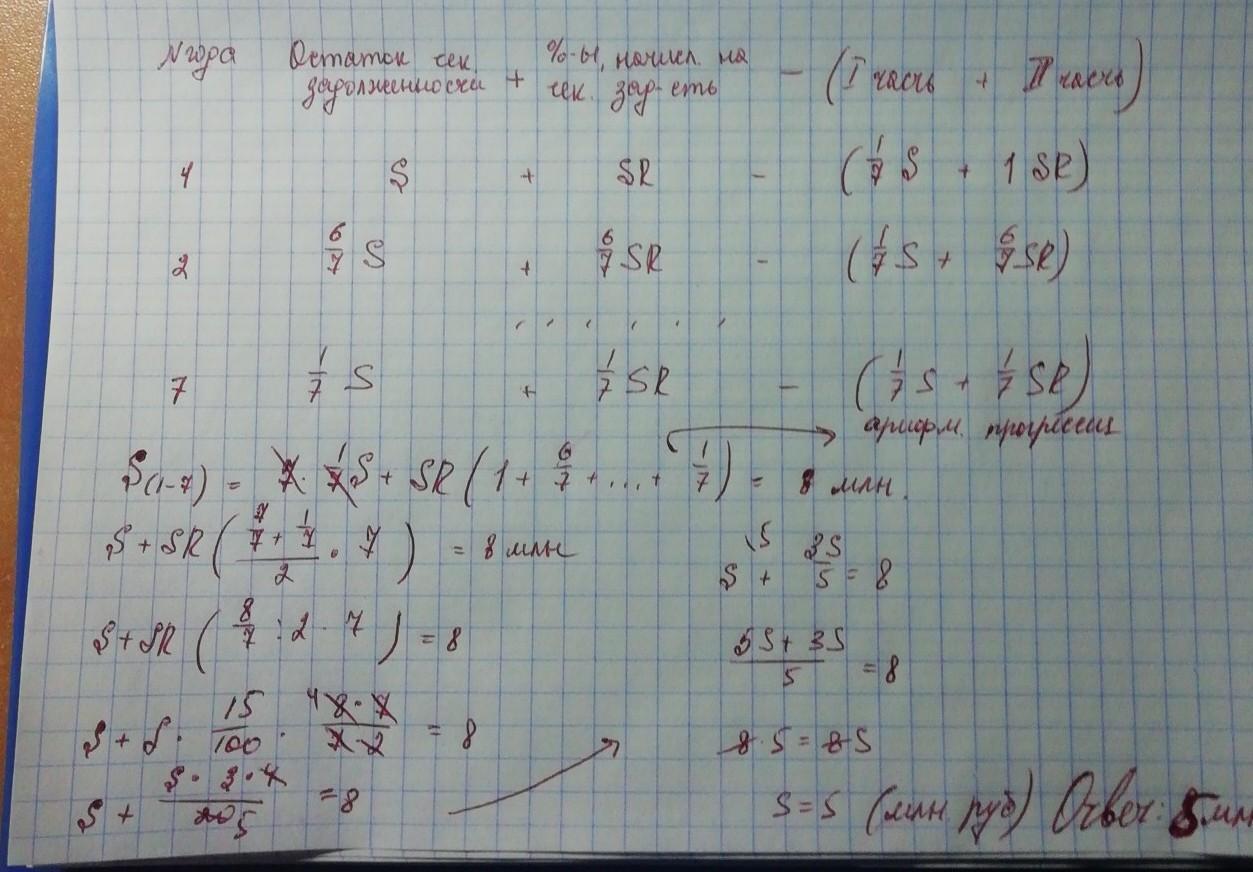 N года Остаток тек. задолженности + %-ы, начисл. на тек. зад-сть - (I часть + II часть)
1 S + SR - (1/7 S + 1 SR)
2 6/7 S + 6/7 SR - (1/7 S + 6/7 SR)
. . . . . .
7 1/7 S + 1/7 SR - (1/7 S + 1/7 SR)
арифм. прогрессия
S(1-7) = 7 · 1/7 S + SR (1 + 6/7 + ... + 1/7) = 8 млн.
S + SR ((7/7 + 1/7)/2 · 7) = 8 млн
S + SR (8/7 : 2 · 7) = 8
S + S · 15/100 · (4 8 · 7)/(7 · 2) = 8
S + (S · 3 · 4)/(20 5) = 8
\5 S + 3S/5 = 8
(5S + 3S)/5 = 8
8 · 5 = 8S
S = 5 (млн. руб) Ответ: 5 млн